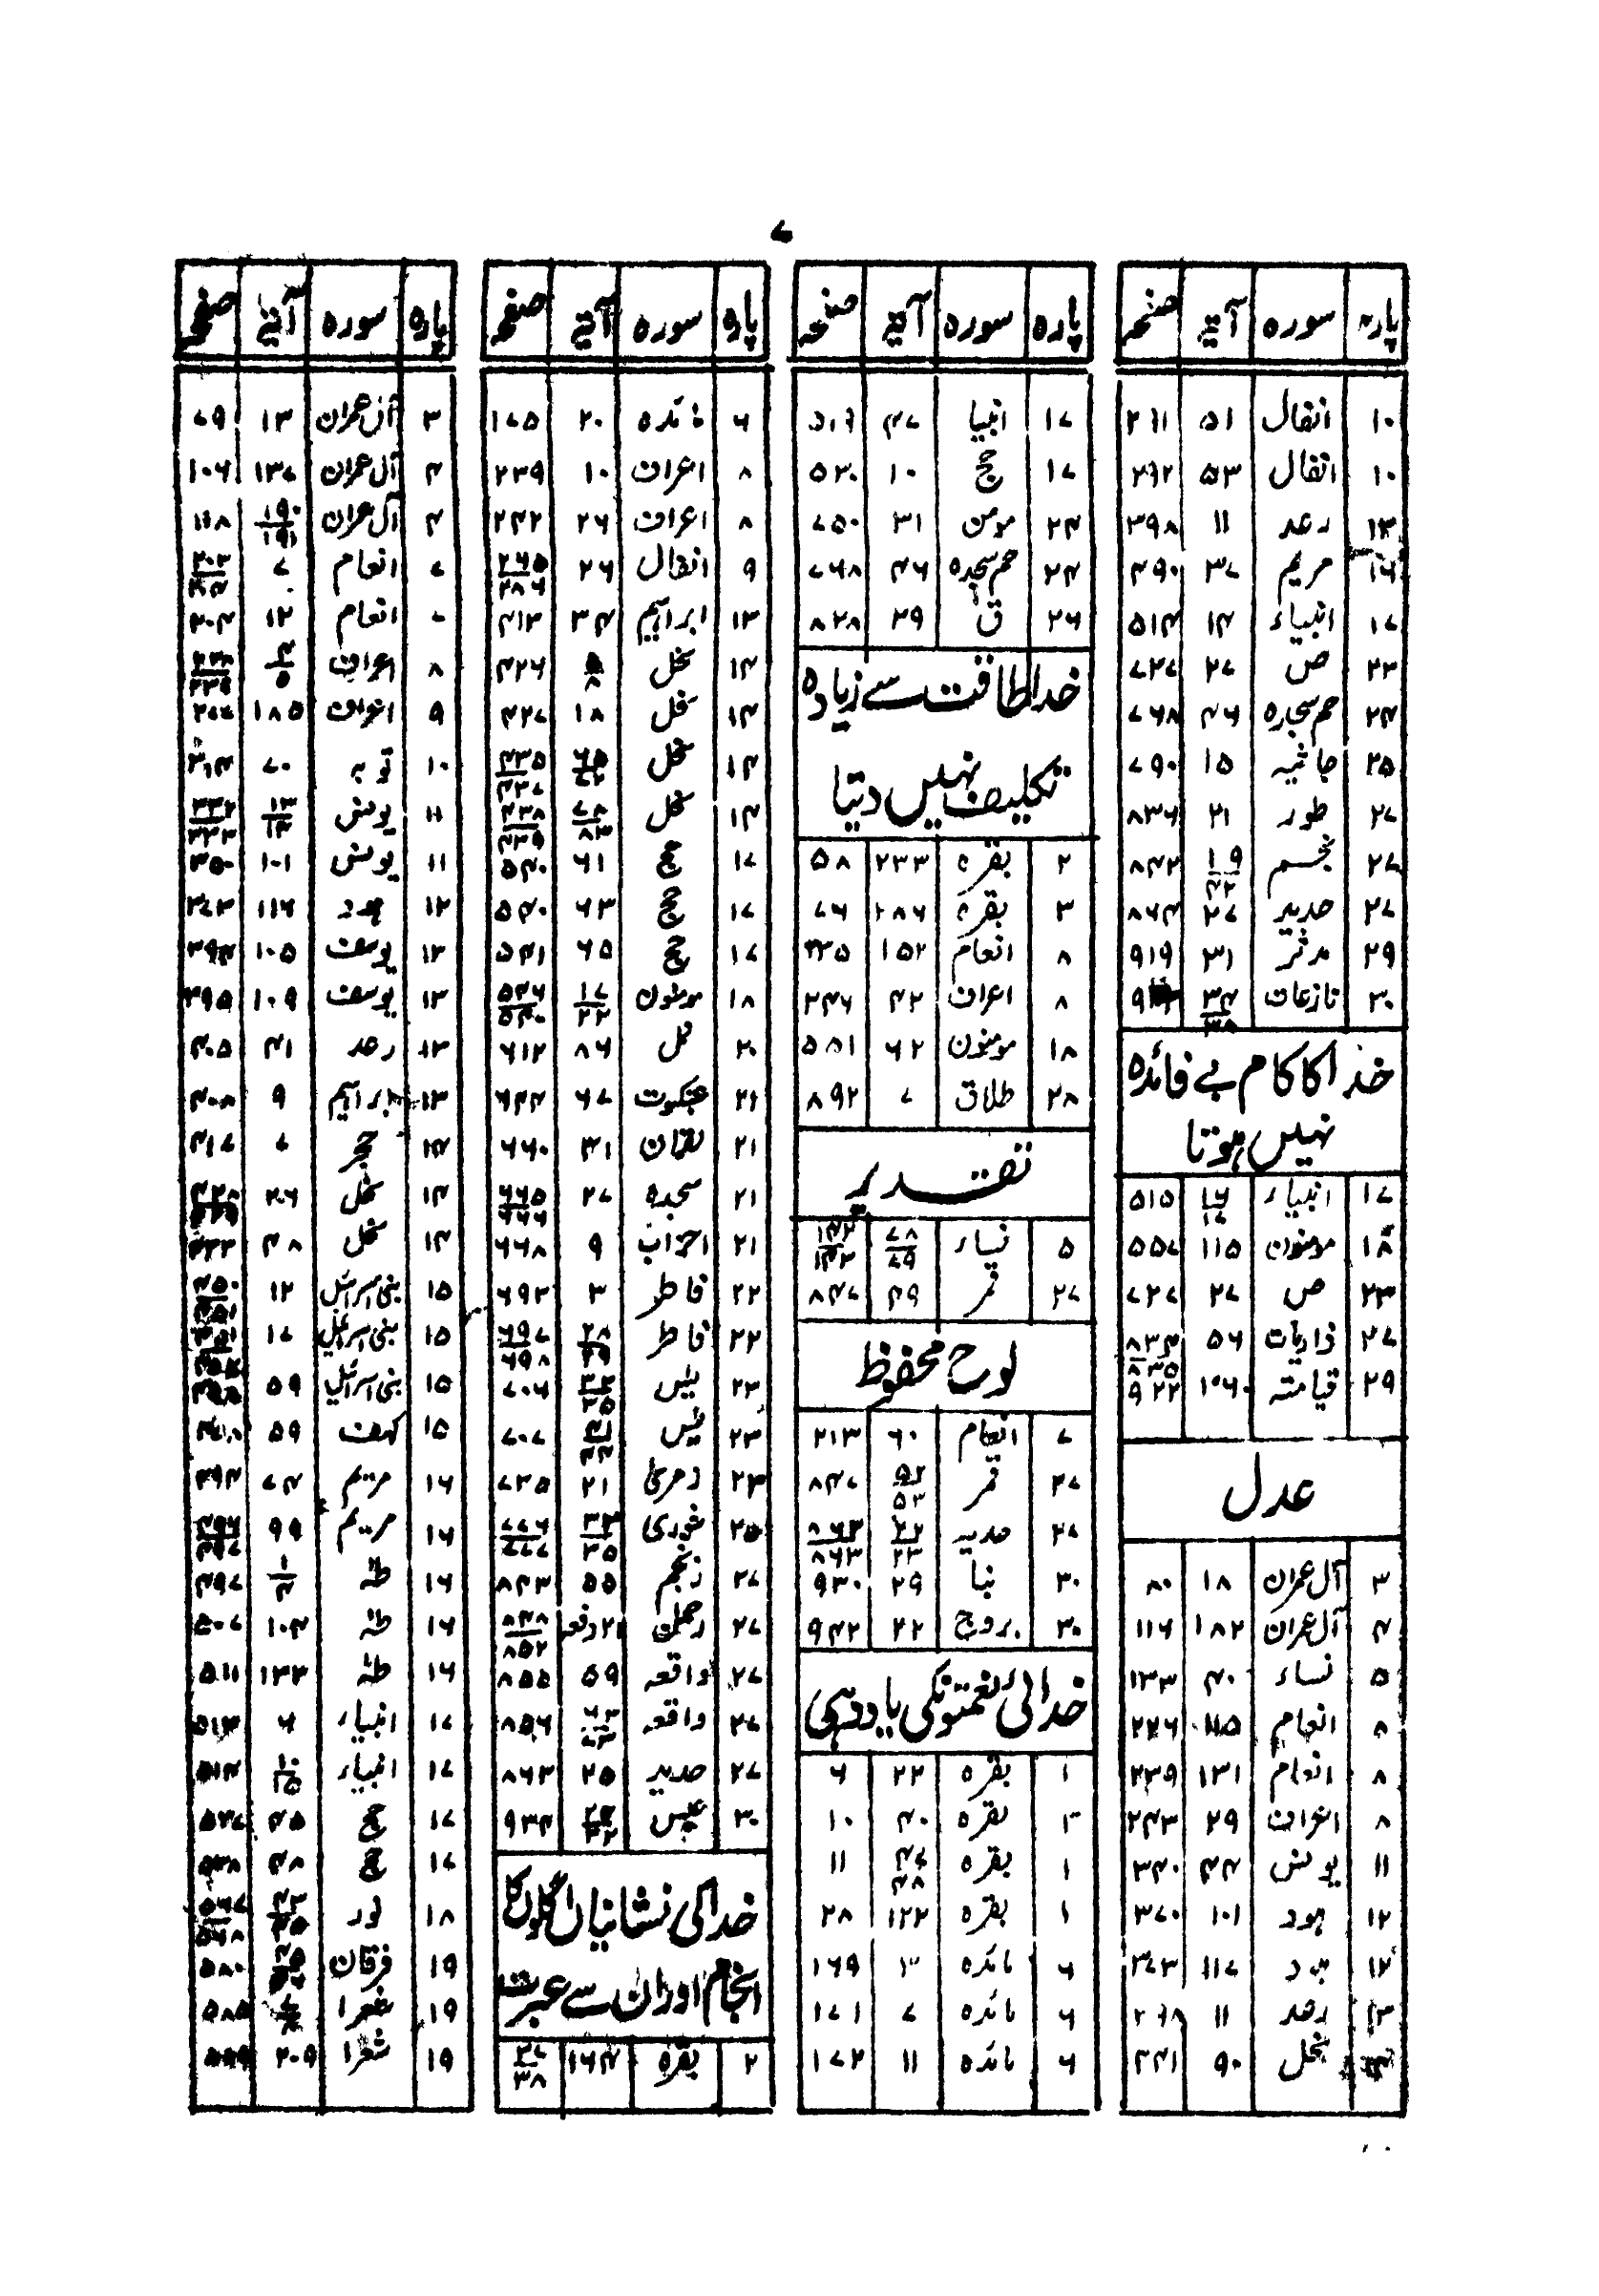 ۷
پارہ سورہ آیت صفحہ
۱۰ انفال ۵۱ ۲۹۱
۱۰ انفال ۵۳ ۲۹۲
۱۳ رعد ۱۱ ۳۹۸
۱۶ مریم ۳۷ ۴۹۰
۱۷ انبیاء ۱۴ ۵۱۴
۲۳ ص ۲۷ ۷۲۷
۲۴ حم سجدہ ۴۶ ۷۶۸
۲۵ جاثیہ ۱۵ ۷۹۰
۲۷ طور ۲۱ ۸۳۶
۲۷ نجم ۱۹/۴۲ ۸۴۲
۲۷ حدید ۲۷ ۸۶۴
۲۹ مدثر ۳۱ ۹۱۹
۳۰ نازعات ۳۴/۳۸
خدا کا کام بے فائدہ
نہیں ہوتا
۱۷ انبیاء ۱۶/۱۷ ۵۱۵
۱۸ مومنون ۱۱۵ ۵۵۷
۲۳ ص ۲۷ ۷۲۷
۲۷ ذاریات ۵۶ ۸۳۴/۸۳۵
۲۹ قیامتہ ۹۲۲
عدل
۳ آل عمران ۱۸ ۸۰
۴ آل عمران ۱۸۲ ۱۱۶
۵ نساء ۴۰ ۱۳۳
۸ انعام ۱۱۵ ۲۲۶
۸ انعام ۱۳۱ ۲۳۹
۸ اعراف ۲۹ ۲۴۳
۱۱ یونس ۴۴ ۳۴۰
۱۲ ہود ۱۰۱ ۳۷۰
۱۲ ہود ۱۱۷ ۳۷۳
۱۳ رعد ۱۱
نحل ۹۰ ۴۴۱
پارہ سورہ آیت صفحہ
۱۷ انبیا ۴۷ ۵۱۹
۱۷ حج ۱۰ ۵۳۰
۲۴ مومن ۳۱ ۷۵۰
۲۴ حم سجدہ ۴۶ ۷۶۸
۲۶ ق ۲۹ ۸۲۸
خدا طاقت سے زیادہ
تکلیف نہیں دیتا
۲ بقرہ ۲۳۳ ۵۸
۳ بقرہ ۲۸۶ ۷۶
۸ انعام ۱۵۲ ۲۳۵
۸ اعراف ۴۲ ۲۴۶
۱۸ مومنون ۶۲ ۵۵۱
۲۸ طلاق ۷ ۸۹۲
تقدیر
۵ نساء ۷۸/۷۹ ۱۴۲/۱۴۳
۲۷ قمر ۴۹ ۸۴۷
لوح محفوظ
۷ انعام ۶۰ ۲۱۳
۲۷ قمر ۵۲/۵۳ ۸۴۷
۲۷ حدید ۲۲/۲۳ ۸۶۲/۸۶۳
۳۰ نبا ۲۹ ۹۳۰
۳۰ بروج ۲۲ ۹۴۲
خدائی نعمتونکی یاددہی
۱ بقرہ ۲۲ ۶
۱ بقرہ ۴۰ ۱۰
۱ بقرہ ۴۷/۴۸ ۱۱
۱ بقرہ ۱۲۲ ۲۸
۶ مائدہ ۳ ۱۶۹
۶ مائدہ ۷ ۱۷۱
۶ مائدہ ۱۱ ۱۷۲
پارہ سورہ آیت صفحہ
۶ مائدہ ۲۰ ۱۷۵
۸ اعراف ۱۰ ۲۳۹
۸ اعراف ۲۶ ۲۴۲
۹ انفال ۲۶ ۲۶۵/۲۸۶
۱۳ ابراہیم ۳۴ ۴۱۳
۱۴ نحل ۵/۸ ۴۲۶
۱۴ نحل ۱۸ ۴۲۷
۱۴ نحل ۶۵/۷۲ ۴۳۵/۴۳۷
۱۴ نحل ۷۸/۸۳ ۴۳۸/۴۳۹
۱۷ حج ۶۱ ۵۴۰
۱۷ حج ۶۳ ۵۴۰
۱۷ حج ۶۵ ۵۴۱
۱۸ مومنون ۱۷/۲۲ ۵۴۶/۵۴۰
۲۰ نمل ۸۶ ۶۱۲
۲۱ عنکبوت ۶۷ ۶۴۴
۲۱ لقمان ۳۱ ۶۶۰
۲۱ سجدہ ۲۷ ۶۶۵/۶۶۶
۲۱ احزاب ۹ ۶۶۸
۲۲ فاطر ۳ ۶۹۲
۲۲ فاطر ۲۸/۲۹ ۶۹۷/۶۹۸
۲۳ یٰس ۳۳/۳۵ ۷۰۶
۲۳ یٰس ۴۱/۴۴ ۷۰۷
۲۳ زمر ۲۱ ۷۳۵
۲۵ شوریٰ ۳۳/۳۵ ۷۷۶/۷۷۷
۲۷ نجم ۵۵ ۸۴۳
۲۷ رحمٰن ۳۱ دفعہ ۸۴۸/۸۵۲
۲۷ واقعہ ۵۹ ۸۵۵
۲۷ واقعہ ۶۳/۷۳ ۸۵۶
۲۷ حدید ۲۵ ۸۶۳
۳۰ عبس ۹۳۴
خدا کی نشانیاں اگلوں کا
انجام اور ان سے عبرت
۲ بقرہ ۱۶۴ ۳۷/۳۸
پارہ سورہ آیت صفحہ
۳ آل عمران ۱۳ ۷۹
۴ آل عمران ۱۳۷ ۱۰۶
۴ آل عمران ۱۹۰/۱۹۱ ۱۱۸
۷ انعام ۷
انعام ۱۲ ۲۰۴
۸ اعراف ۴/۵ ۲۳۸/۲۳۹
۹ اعراف ۱۸۵
۱۰ توبہ ۷۰ ۳۱۴
۱۱ یونس ۱۳/۱۴ ۳۳۲/۳۳۳
۱۱ یونس ۱۰۱ ۳۵۰
۱۲ ہود ۱۱۶ ۳۷۳
۱۳ یوسف ۱۰۵ ۳۹۴
۱۳ یوسف ۱۰۹ ۳۹۵
۱۳ رعد ۴۱ ۴۰۵
۱۳ ابراہیم ۹ ۴۰۸
۱۴ حجر ۷ ۴۱۷
۱۴ نحل
۱۴ نحل ۴۸
۱۵ بنی اسرائیل ۱۲ ۴۵۰/۴۵۱
۱۵ بنی اسرائیل ۱۷
۱۵ بنی اسرائیل ۵۹
۱۵ کہف ۵۹
۱۶ مریم ۷۴ ۴۹۴
۱۶ مریم ۹۹ ۴۹۶/۴۹۷
۱۶ طٰہٰ ۱/۴ ۴۹۷
۱۶ طٰہٰ ۱۰۴ ۵۰۷
۱۶ طٰہٰ ۱۳۳ ۵۱۱
۱۷ انبیاء ۶ ۵۱۳
۱۷ انبیاء ۱۰/۱۵ ۵۱۴
۱۷ حج ۴۵ ۵۳۷
۱۷ حج ۴۸ ۵۳۸
۱۸ نور ۴۳/۴۵ ۵۶۷/۵۶۸
۱۹ فرقان ۵۸۰
۱۹ شعرا ۵۸۵
۱۹ شعرا ۲۰۹ ۵۹۹